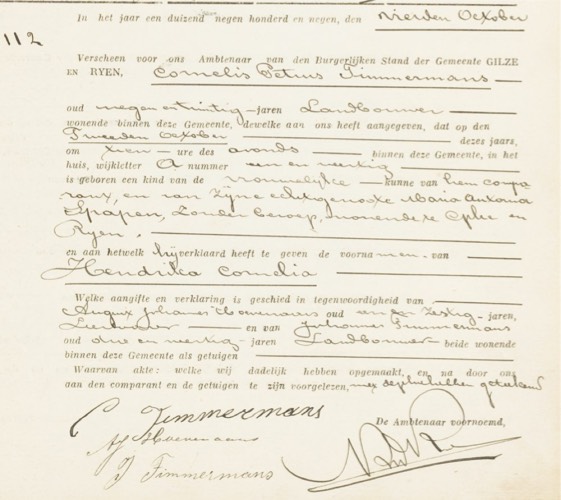 In het jaar een duizend negen honderd en negen, den vierden October
112
Verscheen voor ons Ambtenaar van den Burgerlijken Stand der Gemeente GILZE
EN RYEN, Cornelis Petrus Timmermans
oud negen en twintig jaren Landbouwer
wonende binnen deze Gemeente, dewelke aan ons heeft aangegeven, dat op den
Tweeden October dezes jaars,
om tien ure des avonds binnen deze Gemeente, in het
huis, wijkletter A nummer een en veertig
is geboren een kind van de vrouwelijke kunne van hem compa
rant, en van zijne echtgenoote Maria Antonia
Spapen, zonder beroep, wonende te Gilze en
Ryen,
en aan hetwelk hij verklaard heeft te geven de voornamen van
Hendrika Cornelia
Welke aangifte en verklaring is geschied in tegenwoordigheid van
August Johannes Hoevenaars oud een en zestig jaren,
en van Johannes Timmermans
oud drie en veertig jaren Landbouwer beide wonende
binnen deze Gemeente als getuigen
Waarvan akte: welke wij dadelijk hebben opgemaakt, en na door ons
aan den comparant en de getuigen te zijn voorgelezen, met dezelve hebben geteekend
De Ambtenaar voornoemd,
C Timmermans
AJ Hoevenaars
J Timmermans